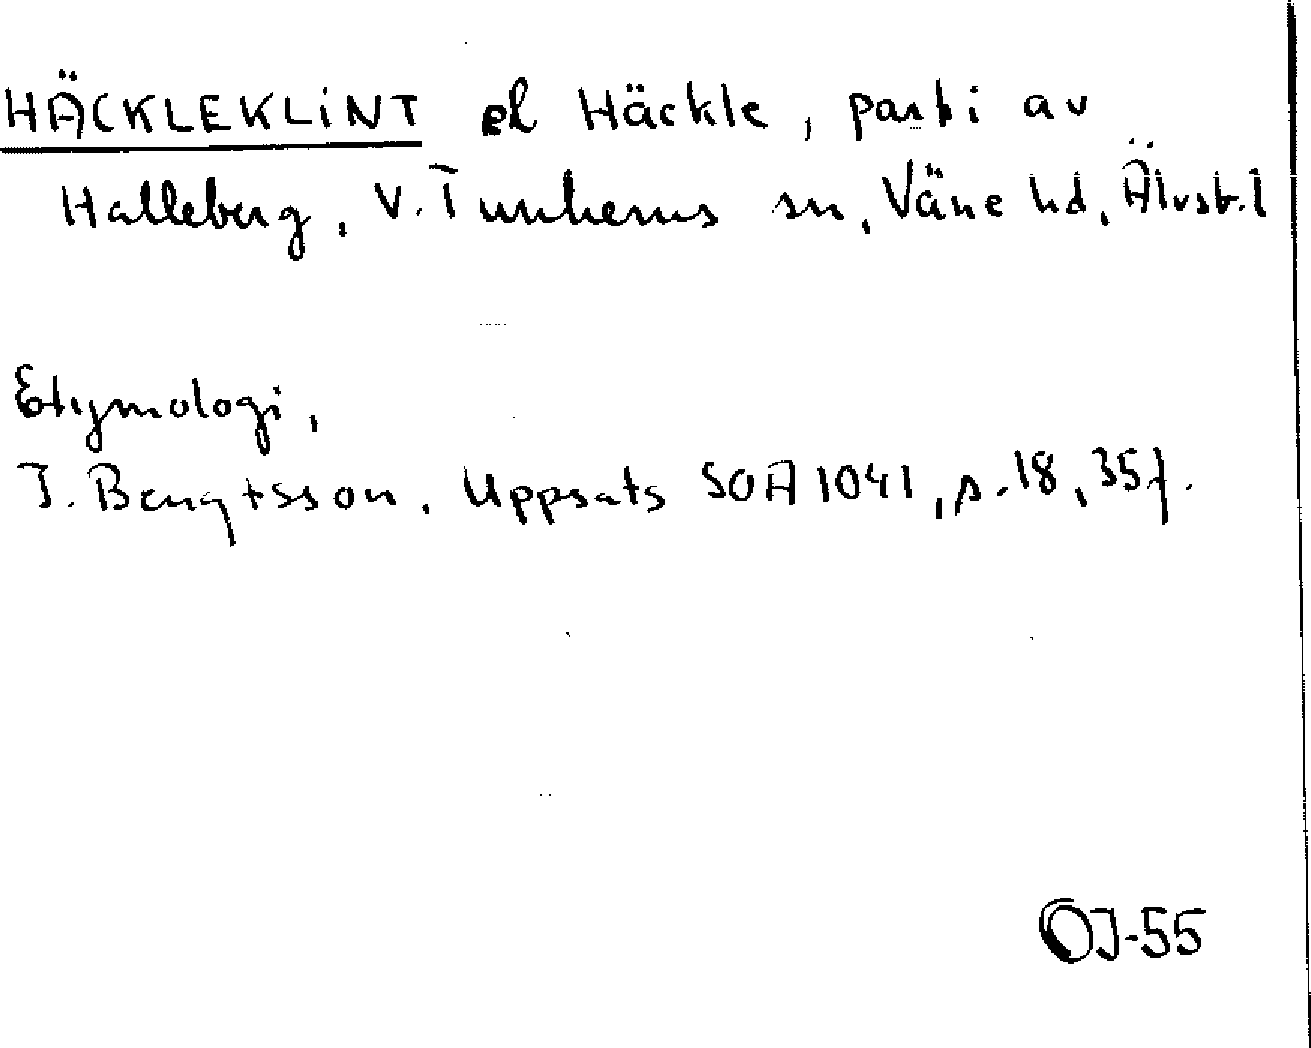 HÄCKLEKLINT el Häckle, parti av
Halleberg, V. Tunhems sn, Väne hd, Älvsb. l
Etymologi,
J. Bengtsson, Uppsats SOA 1041, s. 18, 35f.
OJ-55